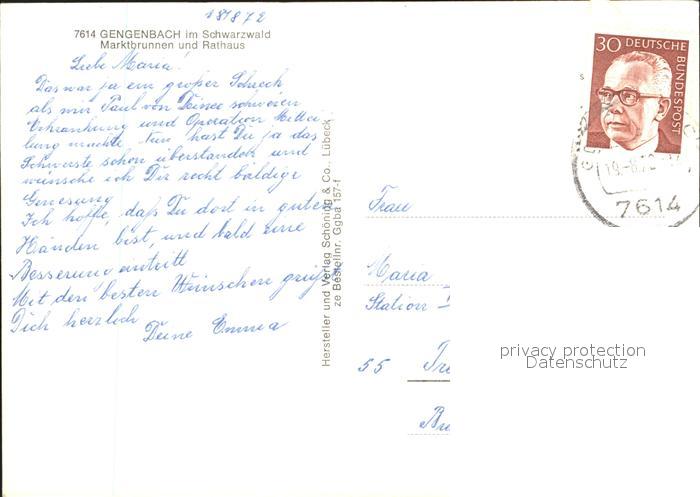 18872
7614 GENGENBACH im Schwarzwald
Marktbrunnen und Rathaus
Liebe Maria!
Das war ja ein großer Schreck
als mir Paul von Deiner schweren
Erkrankung und Operation Mittei-
lung machte. Nun hast Du ja das
Schwerste schon überstanden und
wünsche ich Dir recht baldige
Genesung.
Ich hoffe, daß Du dort in guten
Händen bist, und bald eine
Besserung eintritt
Mit den besten Wünschen grüßt
Dich herzlich
Deine Emma
Hersteller und Verlag Schöning & Co., Lübeck
ze Bestellnr. Ggba 157-f
30 DEUTSCHE
BUNDESPOST
7614
Frau
Maria
Station
55 Tri
privacy protection
Datenschutz